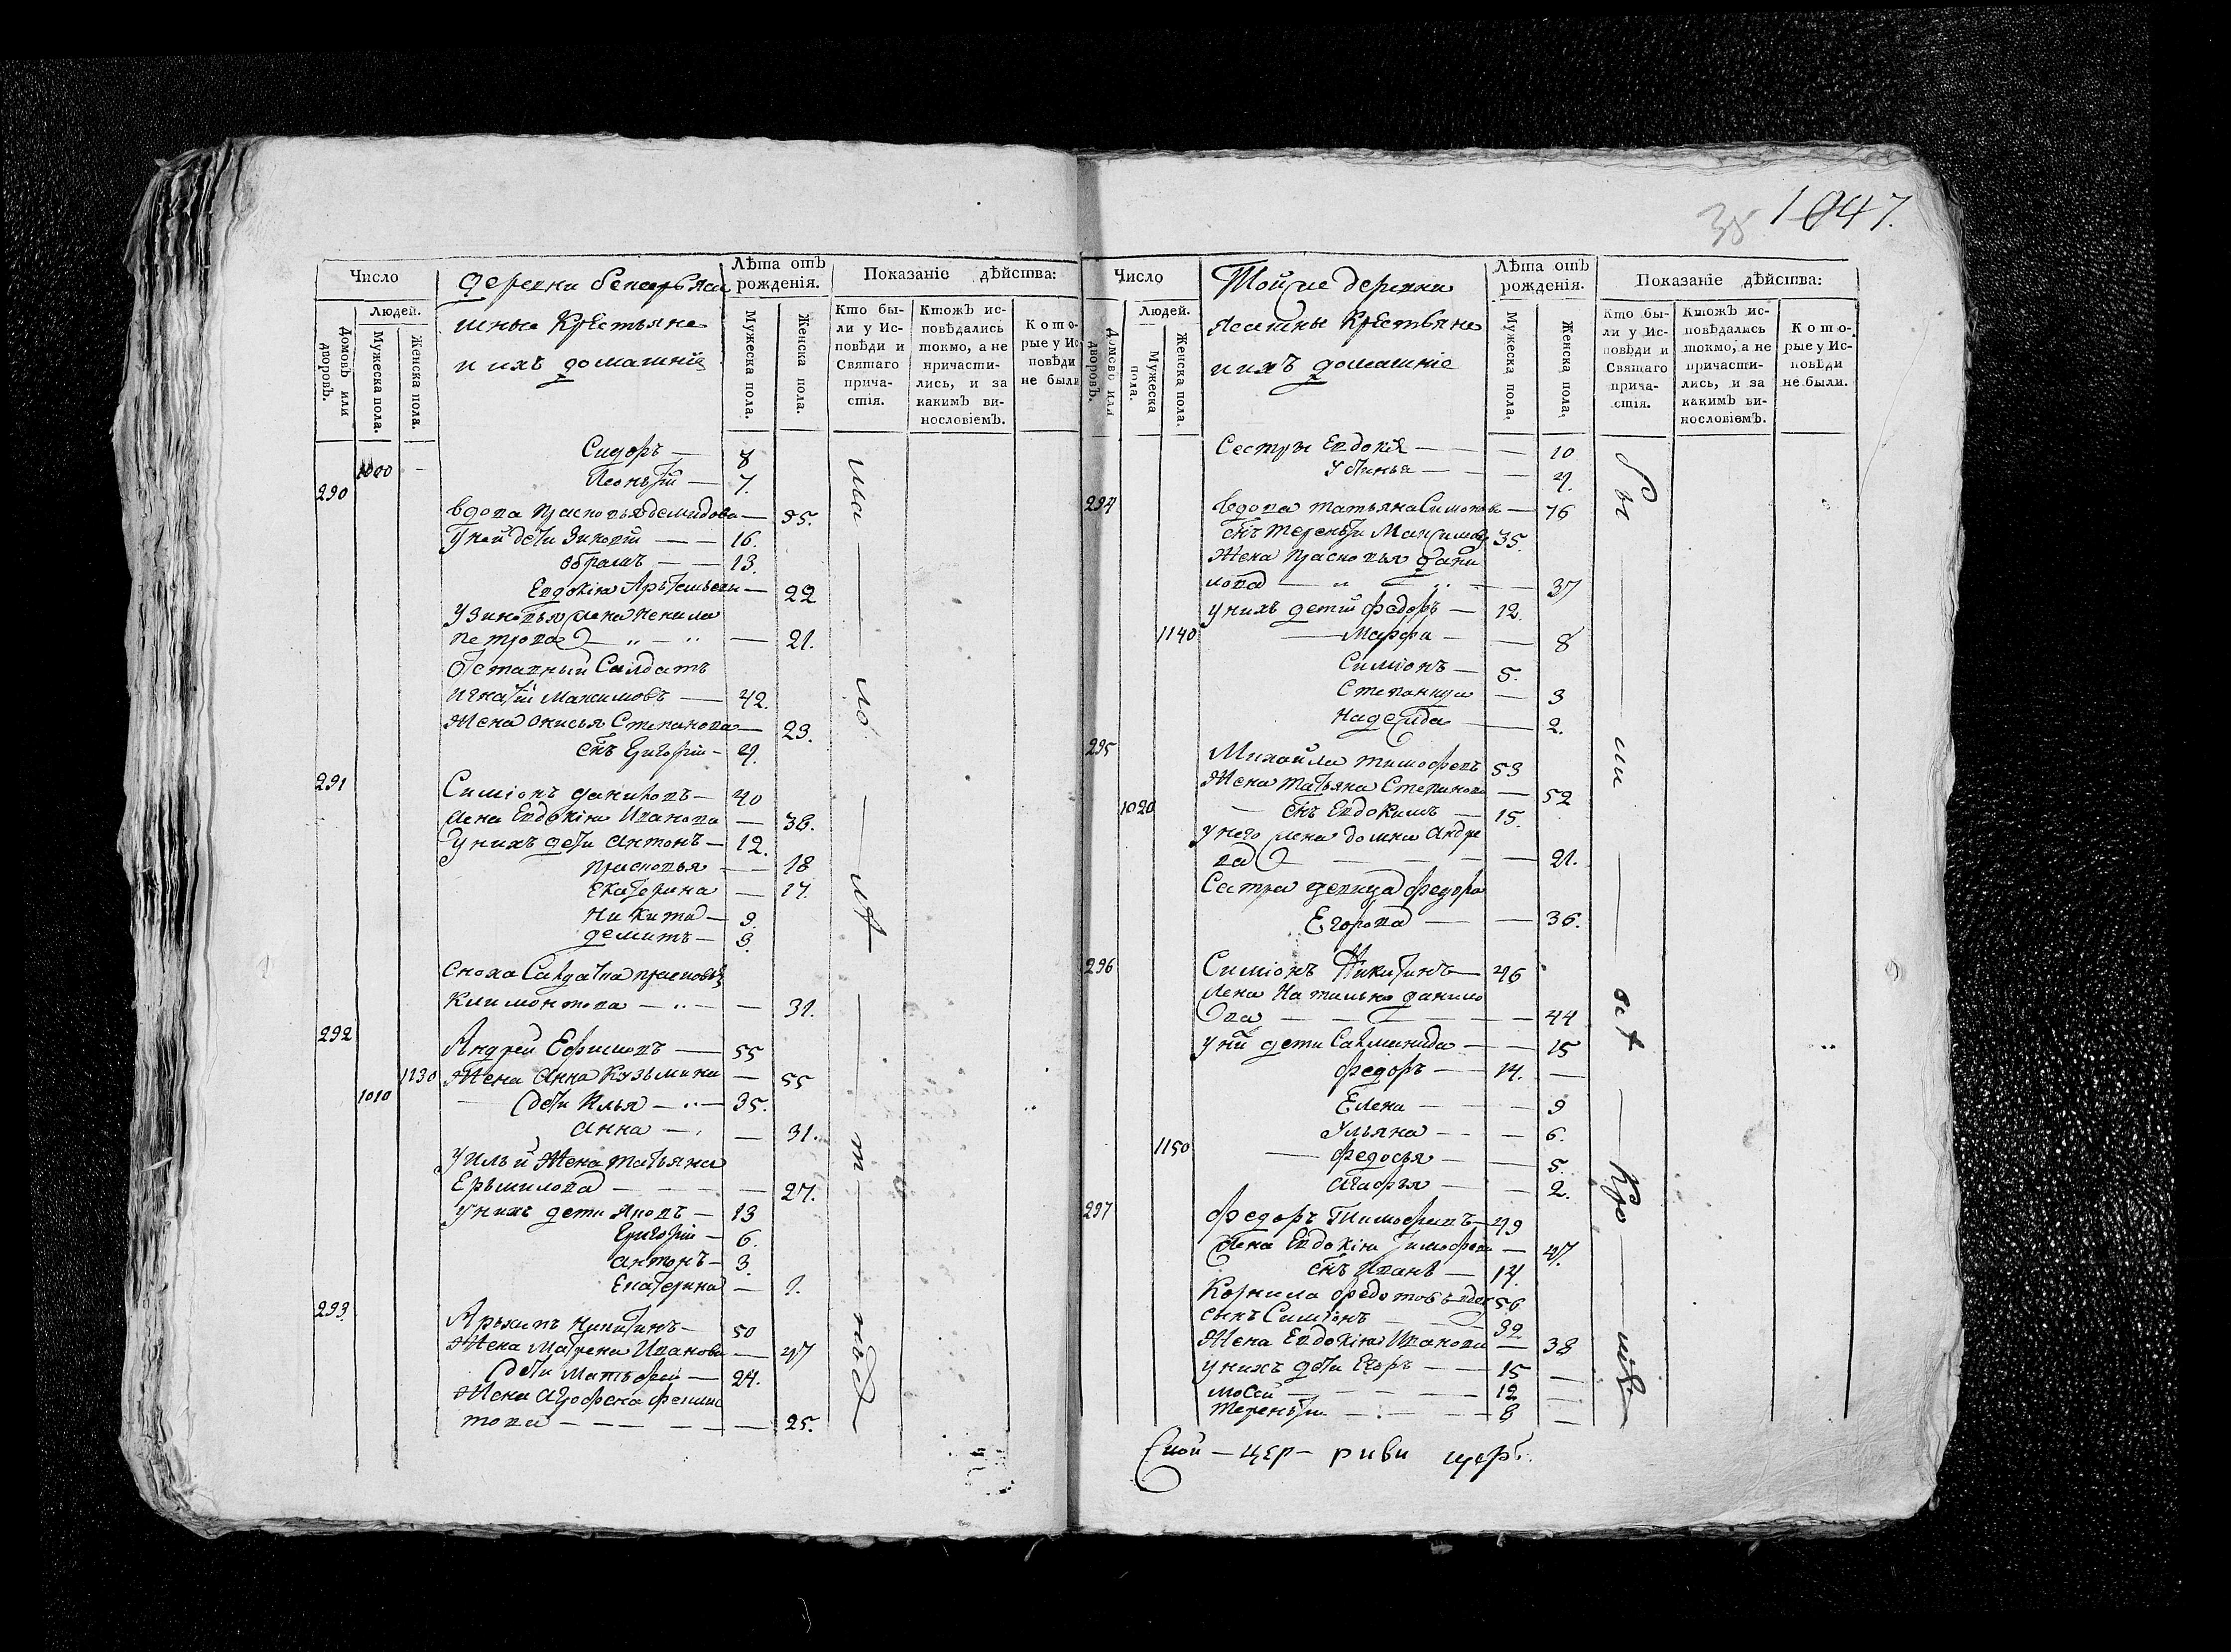 35 1047.
Число
Людей.
Домовъ или дворовъ.
Мужеска пола.
Женска пола.
деревни
шные Крестьяне
и ихъ домашніе
Лѣта отъ рожденія.
Мужеска пола.
Женска пола.
Показаніе дѣйства:
Кто были у Исповѣди и Святаго причастія.
Ктожъ исповѣдались токмо, а не причастились, и за какимъ винословіемъ.
Которые у Исповѣди не были
Сидоръ — 8
1000 Леонътій — 7.
290
вдова прасковья демидова — 55.
Уней дѣти Зиновій — 16.
обрамъ — 13.
Евдокія — 22
У Зиновья жена ненила
петрова — 21.
Отставный Салдатъ
игнатій Максимовъ — 42.
Жена Анисья Степанова — 29.
снъ Григорій — 4.
291 Симіонъ даниловъ — 40
жена Евдокія Иванова — 38.
У нихъ дѣти Антонъ — 12.
прасковья — 18
Екатерина — 17.
Никита — 9.
демитъ — 9.
сноха Салдатка прасковья
Климонтова — 31.
292 Андрей Ефимовъ — 55
1130 Жена Анна Кузьмина — 55
1010 дѣти Илья — 35.
Анна — 31.
У Ильи Жена Татьяна
Ерьмилова — 27.
У нихъ дети Яковъ — 13
Григорій — 6.
Антонъ — 3.
Екатерина —
293 Архипъ Никитинъ — 50
Жена Матрена Иванова — 47
дѣти Матьфей — 24.
Жена Агрофена
това — 25.
Число
Людей.
Домовъ или дворовъ.
Мужеска пола.
Женска пола.
Той же деревни
Ясашные Крестьяне
и ихъ домашніе
Лѣта отъ рожденія.
Мужеска пола,
Женска пола,
Показаніе дѣйства:
Кто были у Исповѣди и Святаго причастія.
Ктожъ исповѣдались токмо, а не причастились, и за какимъ винословіемъ.
Которые у Исповѣди не были.
Сестры Евдокія — 10
Устинья — 4.
294 вдова татьяна Симонова — 76
снъ терентьи Максимовъ 35.
Жена прасковья дани
лова — 37
у нихъ детій федоръ — 12.
1140 Марфа — 8
Симіонъ — 5.
Степанида — 3
Надежда — 2.
295
Михайла тимофеевъ 53
Жена татьяна Степанова — 52
1020 снъ Евдокимъ — 15.
у него жена домна Андре
ва — 21.
Сестра девица федора
Егорова — 36.
296 Симіонъ Никитинъ — 46
жена Наталья данило
ва — 44
У ній дети — 15
федоръ — 14.
Елена — 9
Ульяна — 6.
1150 федосья — 5.
Агафья — 2.
297 федоръ Тимофеевъ — 49
жена Евдокія Тимофеева — 47.
снъ Иванъ — 14.
Корнила федотовъ вдов 56
сынъ Симіонъ — 32
Жена Евдокія Иванова — 38
у нихъ дѣти Егоръ — 15
мосей — 12
терентьи — 8